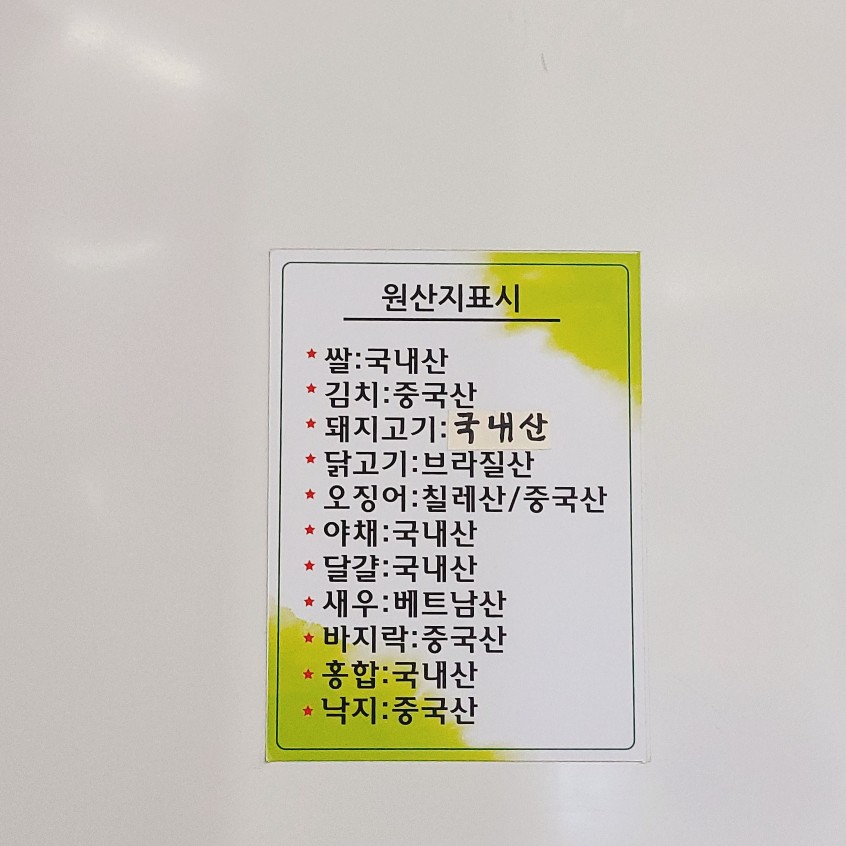 원산지표시
★ 쌀:국내산
★ 김치:중국산
★ 돼지고기:국내산
★ 닭고기:브라질산
★ 오징어:칠레산/중국산
★ 야채:국내산
★ 달걀:국내산
★ 새우:베트남산
★ 바지락:중국산
★ 홍합:국내산
★ 낙지:중국산